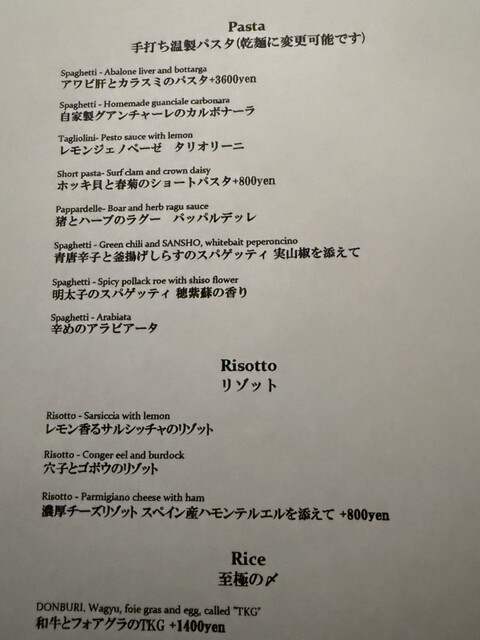 Pasta
手打ち温製パスタ(乾麺に変更可能です)
Spaghetti - Abalone liver and bottarga
アワビ肝とカラスミのパスタ+3600yen
Spaghetti - Homemade guanciale carbonara
自家製グアンチャーレのカルボナーラ
Tagliolini- Pesto sauce with lemon
レモンジェノベーゼ タリオリーニ
Short pasta- Surf clam and crown daisy
ホッキ貝と春菊のショートパスタ+800yen
Pappardelle- Boar and herb ragu sauce
猪とハーブのラグー パッパルデッレ
Spaghetti - Green chili and SANSHO, whitebait peperoncino
青唐辛子と釜揚げしらすのスパゲッティ 実山椒を添えて
Spaghetti - Spicy pollack roe with shiso flower
明太子のスパゲッティ 穂紫蘇の香り
Spaghetti - Arabiata
辛めのアラビアータ
Risotto
リゾット
Risotto - Sarsiccia with lemon
レモン香るサルシッチャのリゾット
Risotto - Conger eel and burdock
穴子とゴボウのリゾット
Risotto - Parmigiano cheese with ham
濃厚チーズリゾット スペイン産ハモンテルエルを添えて +800yen
Rice
至極の〆
DONBURI, Wagyu, foie gras and egg, called "TKG"
和牛とフォアグラのTKG +1400yen